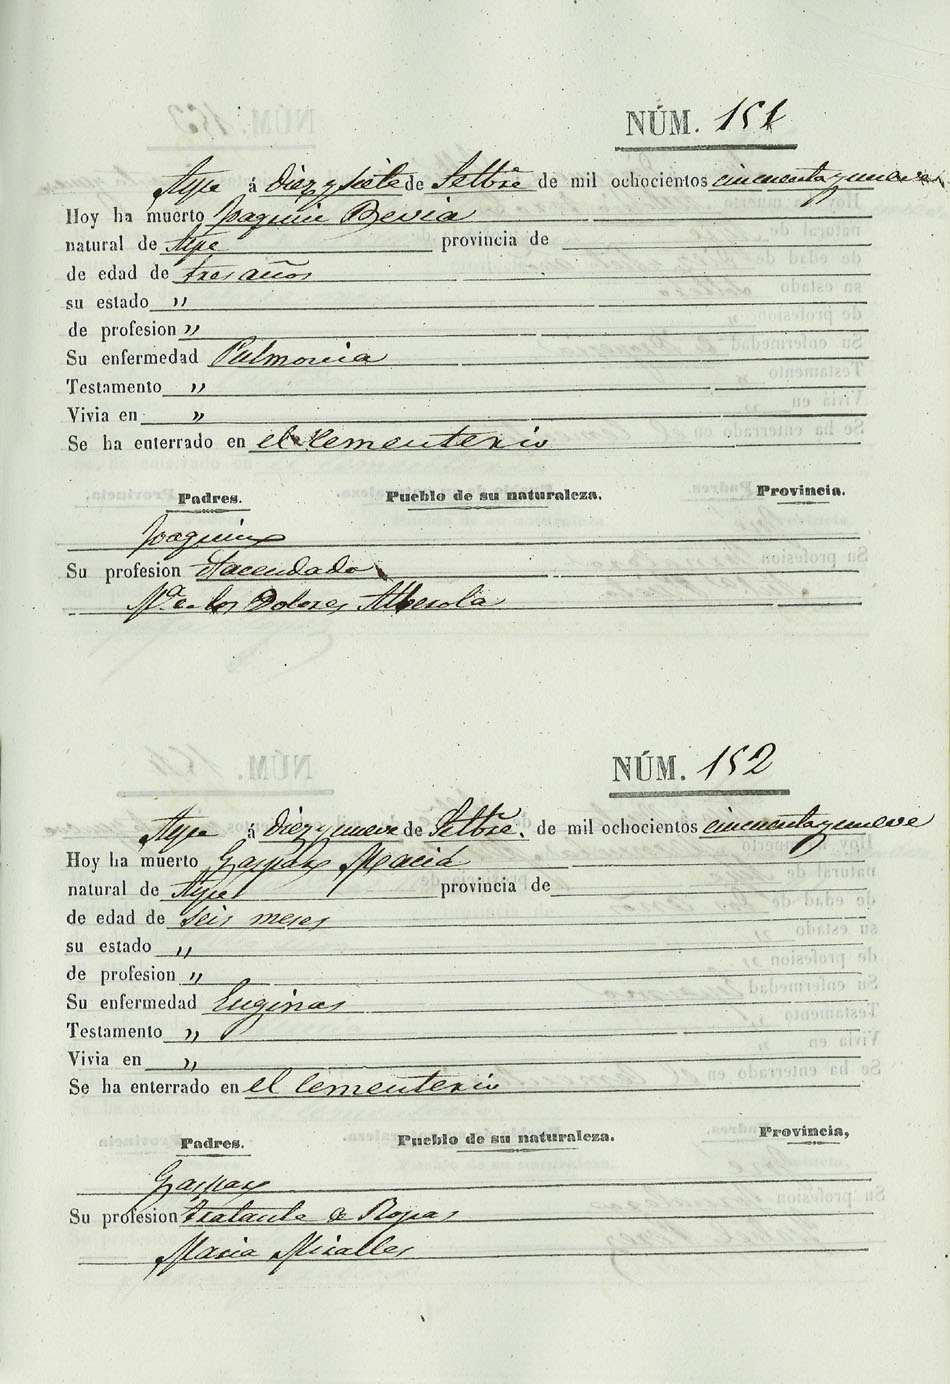 NÚM. 151
Aspe á diez y siete de Setbre de mil ochocientos cincuenta y nueve
Hoy ha muerto Joaquin Bevia
natural de Aspe provincia de
de edad de tres años
su estado "
de profesion "
Su enfermedad Pulmonia
Testamento "
Vivia en "
Se ha enterrado en el Cementerio
Padres. Pueblo de su naturaleza. Provincia.
Joaquin
Su profesion Hacendado
Ma. de los Dolores Alberola
NÚM. 152
Aspe á diez y nueve de Setbre. de mil ochocientos cincuenta y nueve
Hoy ha muerto Gaspar Maciá
natural de Aspe provincia de
de edad de seis meses
su estado "
de profesion "
Su enfermedad Enginas
Testamento "
Vivia en "
Se ha enterrado en el Cementerio
Padres. Pueblo de su naturaleza. Provincia,
Gaspar
Su profesion tratante de Ropas
Maria Miralles